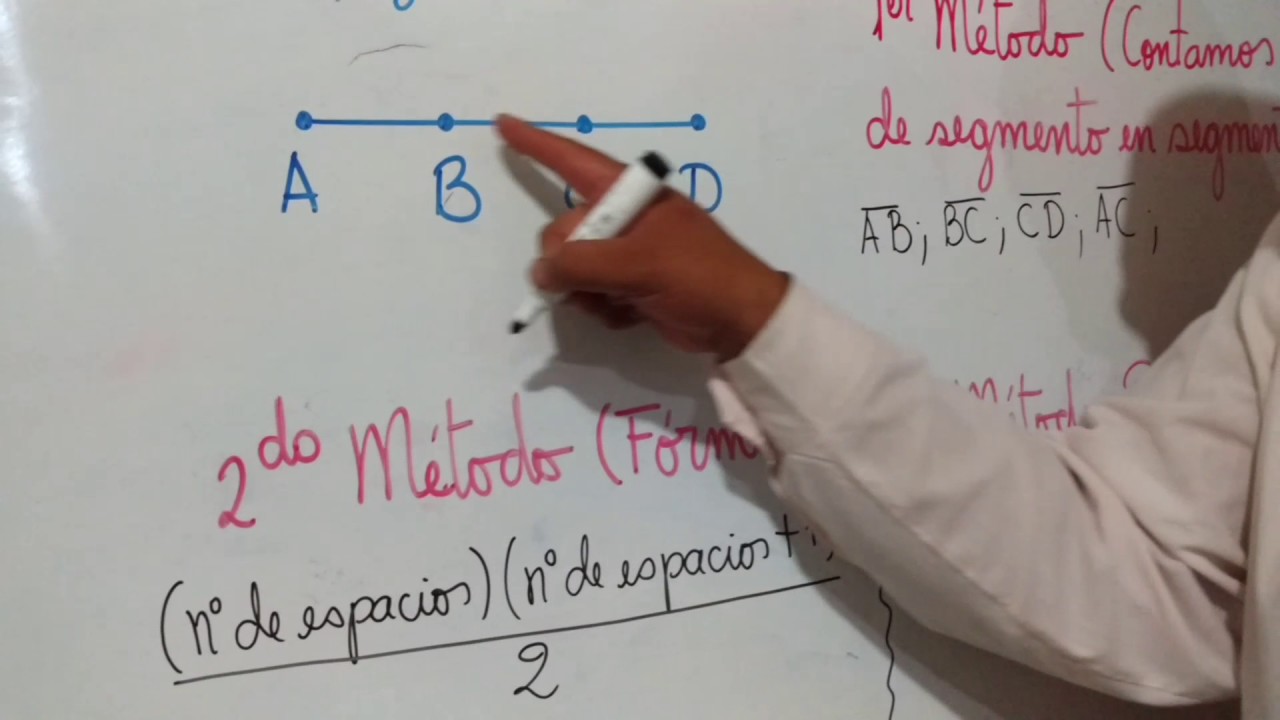 A B D
1er Método (Contamos
de segmento en segmen
A͞B; B͞C; C͞D; A͞C;
2do Método (Fórm
(n° de espacios)(n° de espacios +
2